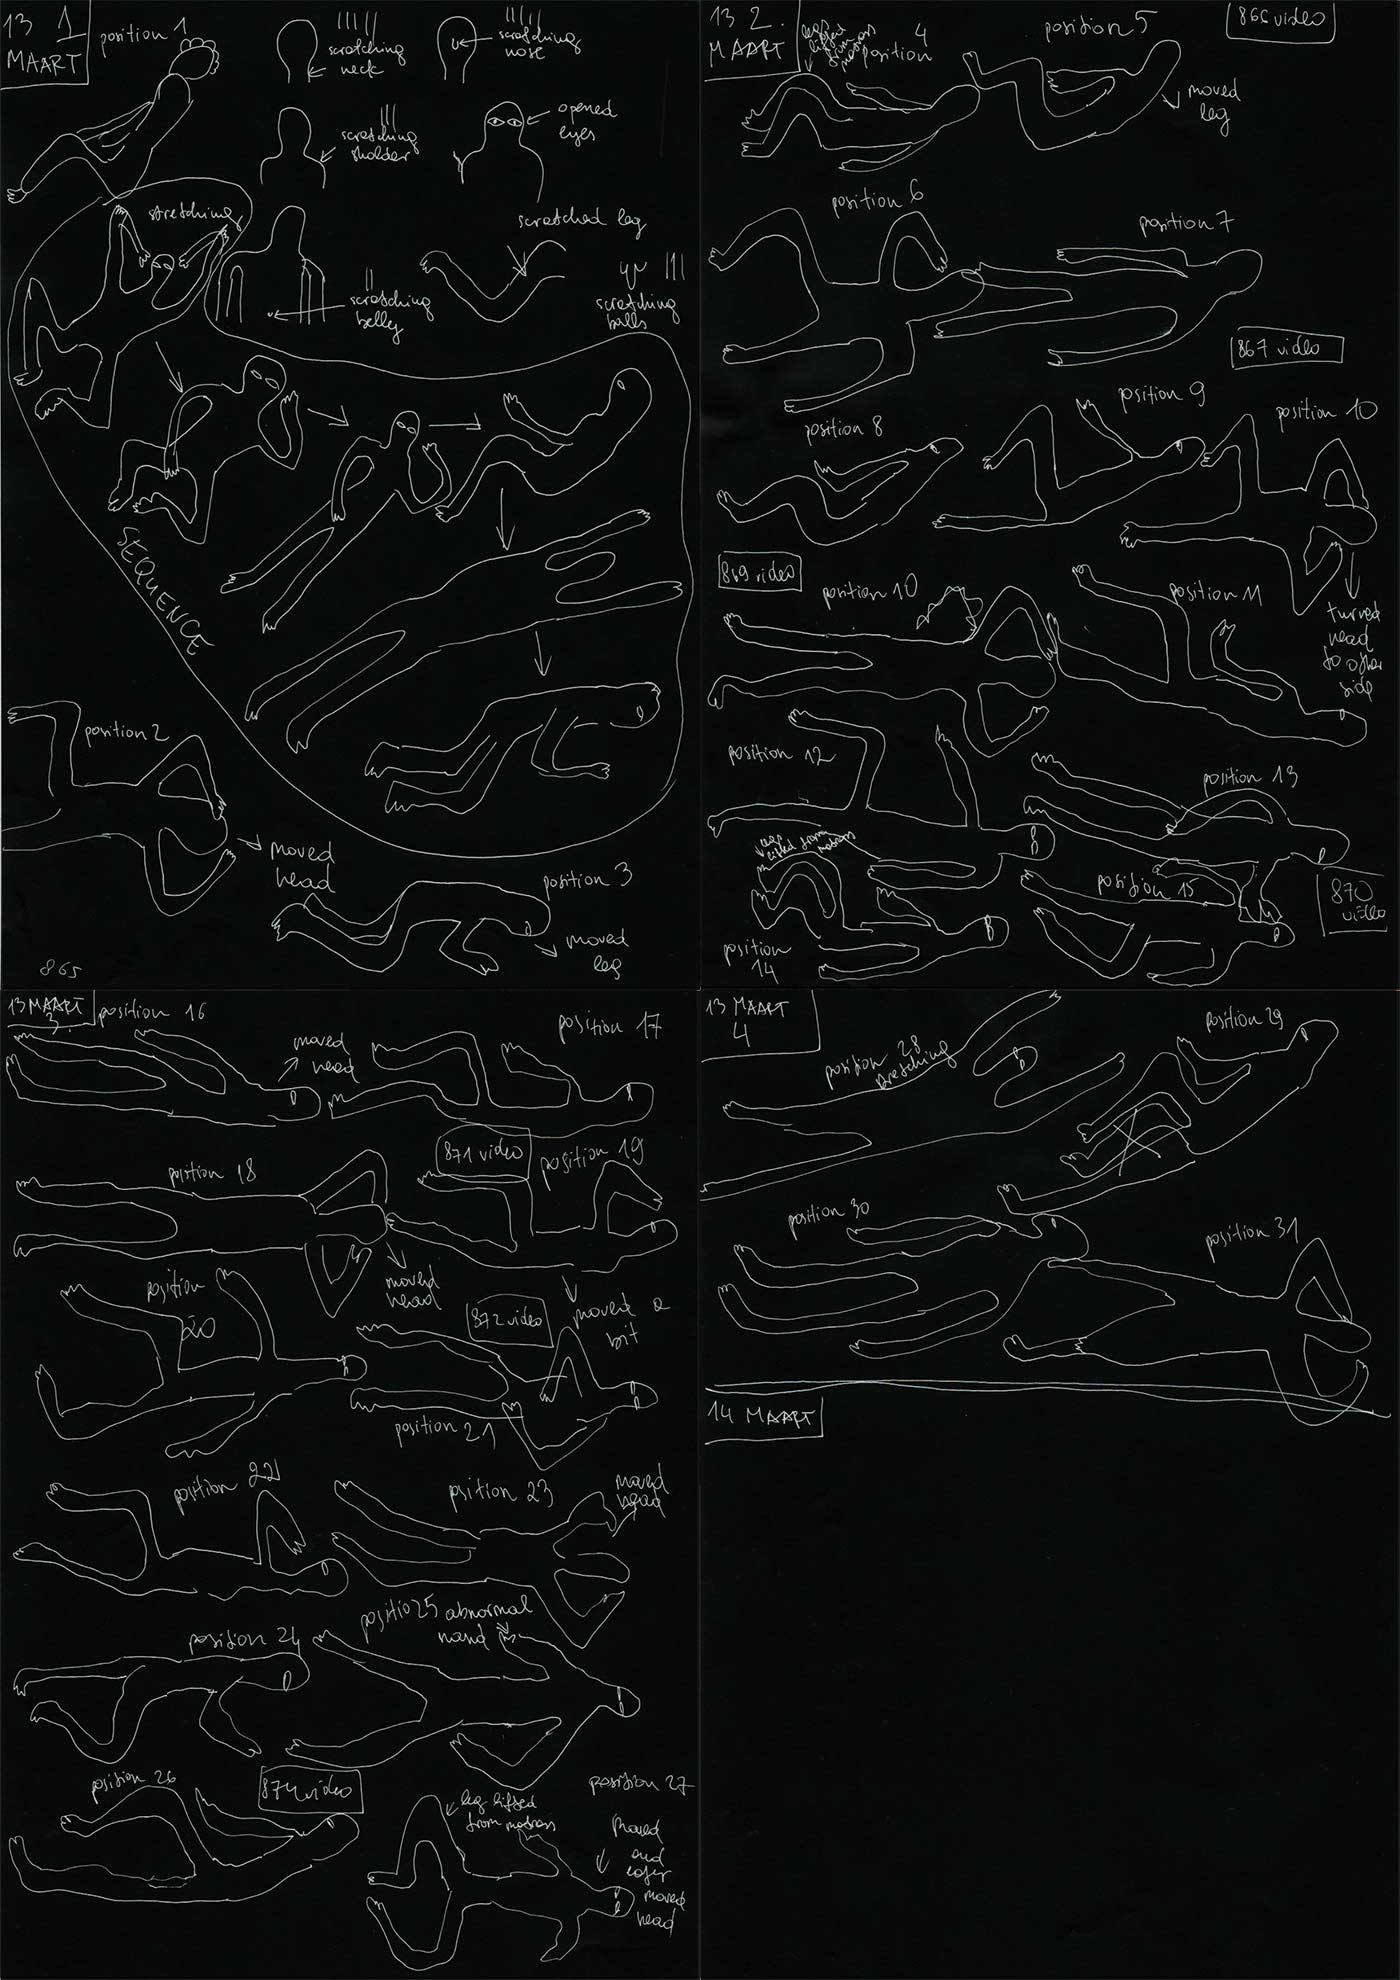 13 1
MAART
position 1
scratching
neck
scratching
nose
scratching
sholder
opened
eyes
stretching
scratching
belly
scratched leg
scratching
balls
SEQUENCE
position 2
moved
head
position 3
moved
leg
865
13 2.
MAART
position 4
position 5
866 video
moved
leg
position 6
position 7
867 video
position 8
position 9
position 10
turned
head
to other
side
869 video
position 10
position 11
position 12
position 13
leg
lifted from
matras
position
14
position 15
870
video
13 MAART
3
position 16
moved
head
position 17
position 18
moved
head
871 video
position 19
moved a
bit
position
20
872 video
position 21
position 22
position 23
moved
head
position 24
positio 25 abnormal
hand
position 26
874 video
position 27
leg lifted
from matras
moved
and
later
moved
head
13 MAART
4
position 28
stretching
position 29
position 30
position 31
14 MAART